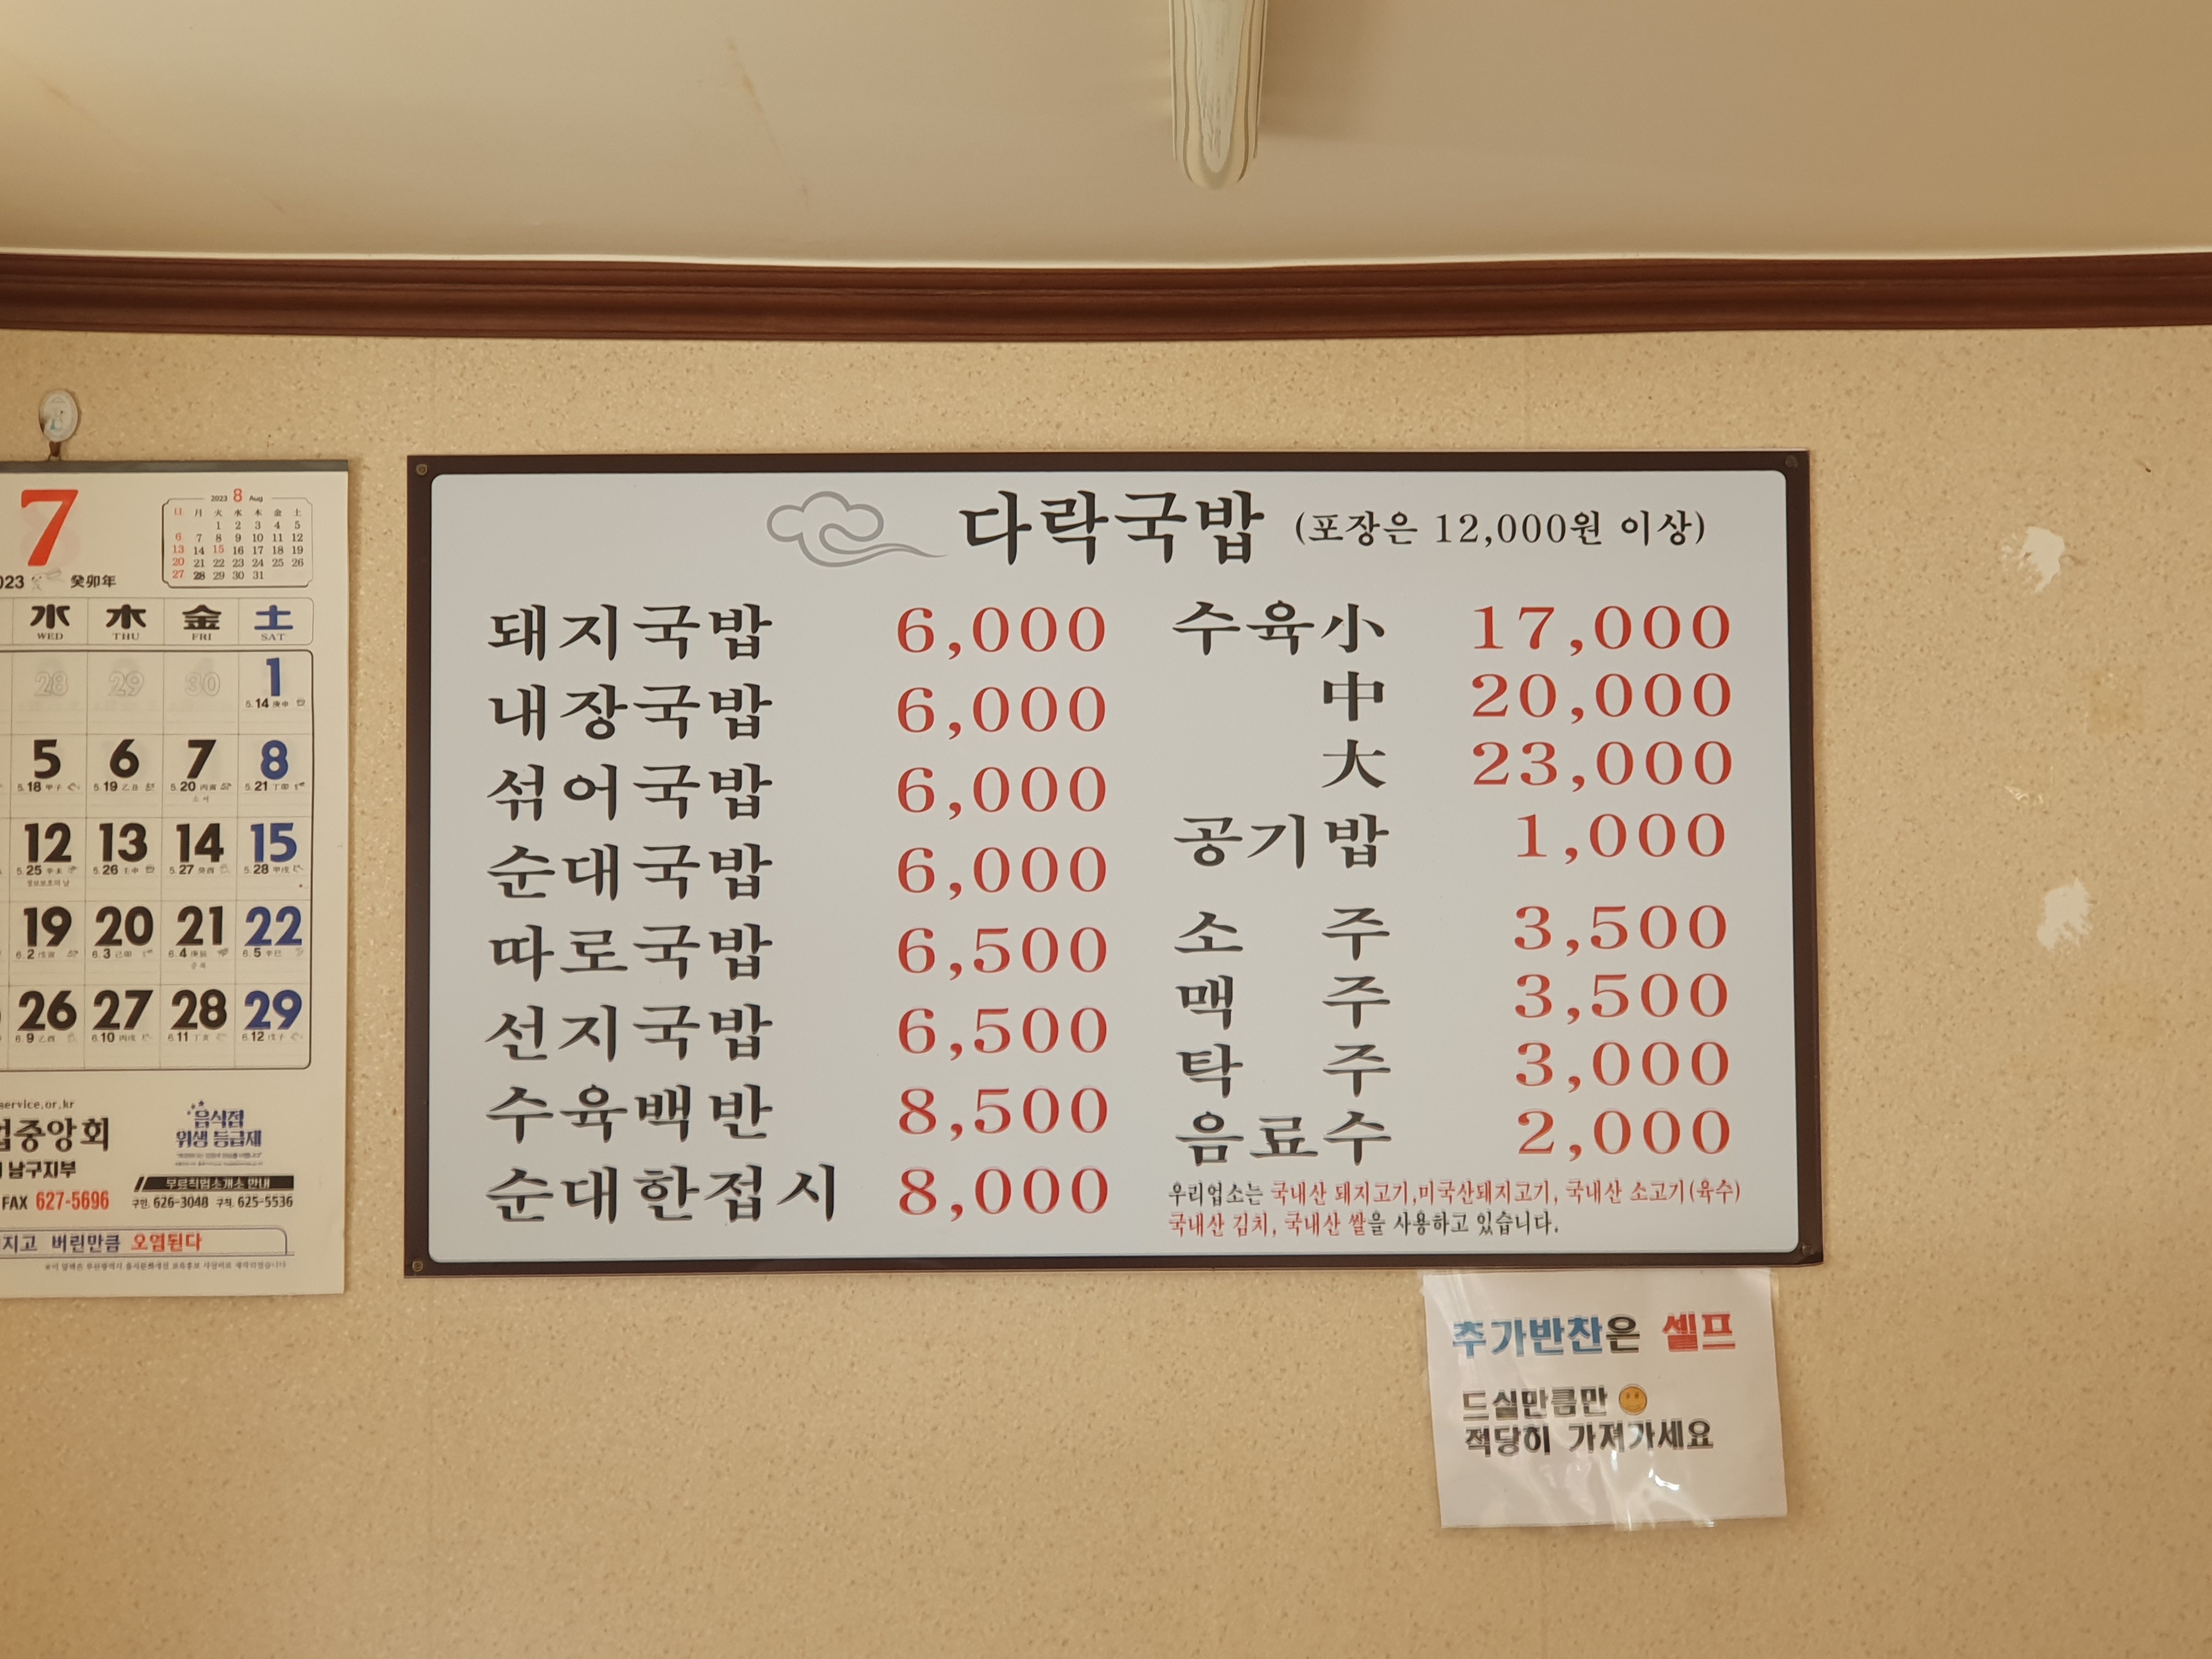 7
2023 8 Aug
日 月 火 水 木 金 土
1 2 3 4 5
6 7 8 9 10 11 12
13 14 15 16 17 18 19
20 21 22 23 24 25 26
27 28 29 30 31
癸卯年
水 木 金 土
WED THU FRI SAT
28 29 30 1
5.14
5 6 7 8
5.18 5.19 5.20 5.21
12 13 14 15
5.25 5.26 5.27 5.28
19 20 21 22
6.2 6.3 6.4 6.5
26 27 28 29
6.9 6.10 6.11 6.12
service.or.kr
중앙회
남구지부
음식점
위생 등급제
무료직업소개소 안내
FAX 627-5696
구인. 626-3048 구직. 625-5536
버린만큼 오염된다
다락국밥 (포장은 12,000원 이상)
돼지국밥 6,000
내장국밥 6,000
섞어국밥 6,000
순대국밥 6,000
따로국밥 6,500
선지국밥 6,500
수육백반 8,500
순대한접시 8,000
수육小 17,000
中 20,000
大 23,000
공기밥 1,000
소 주 3,500
맥 주 3,500
탁 주 3,000
음료수 2,000
우리업소는 국내산 돼지고기,미국산돼지고기, 국내산 소고기(육수)
국내산 김치, 국내산 쌀을 사용하고 있습니다.
추가반찬은 셀프
드실만큼만
적당히 가져가세요